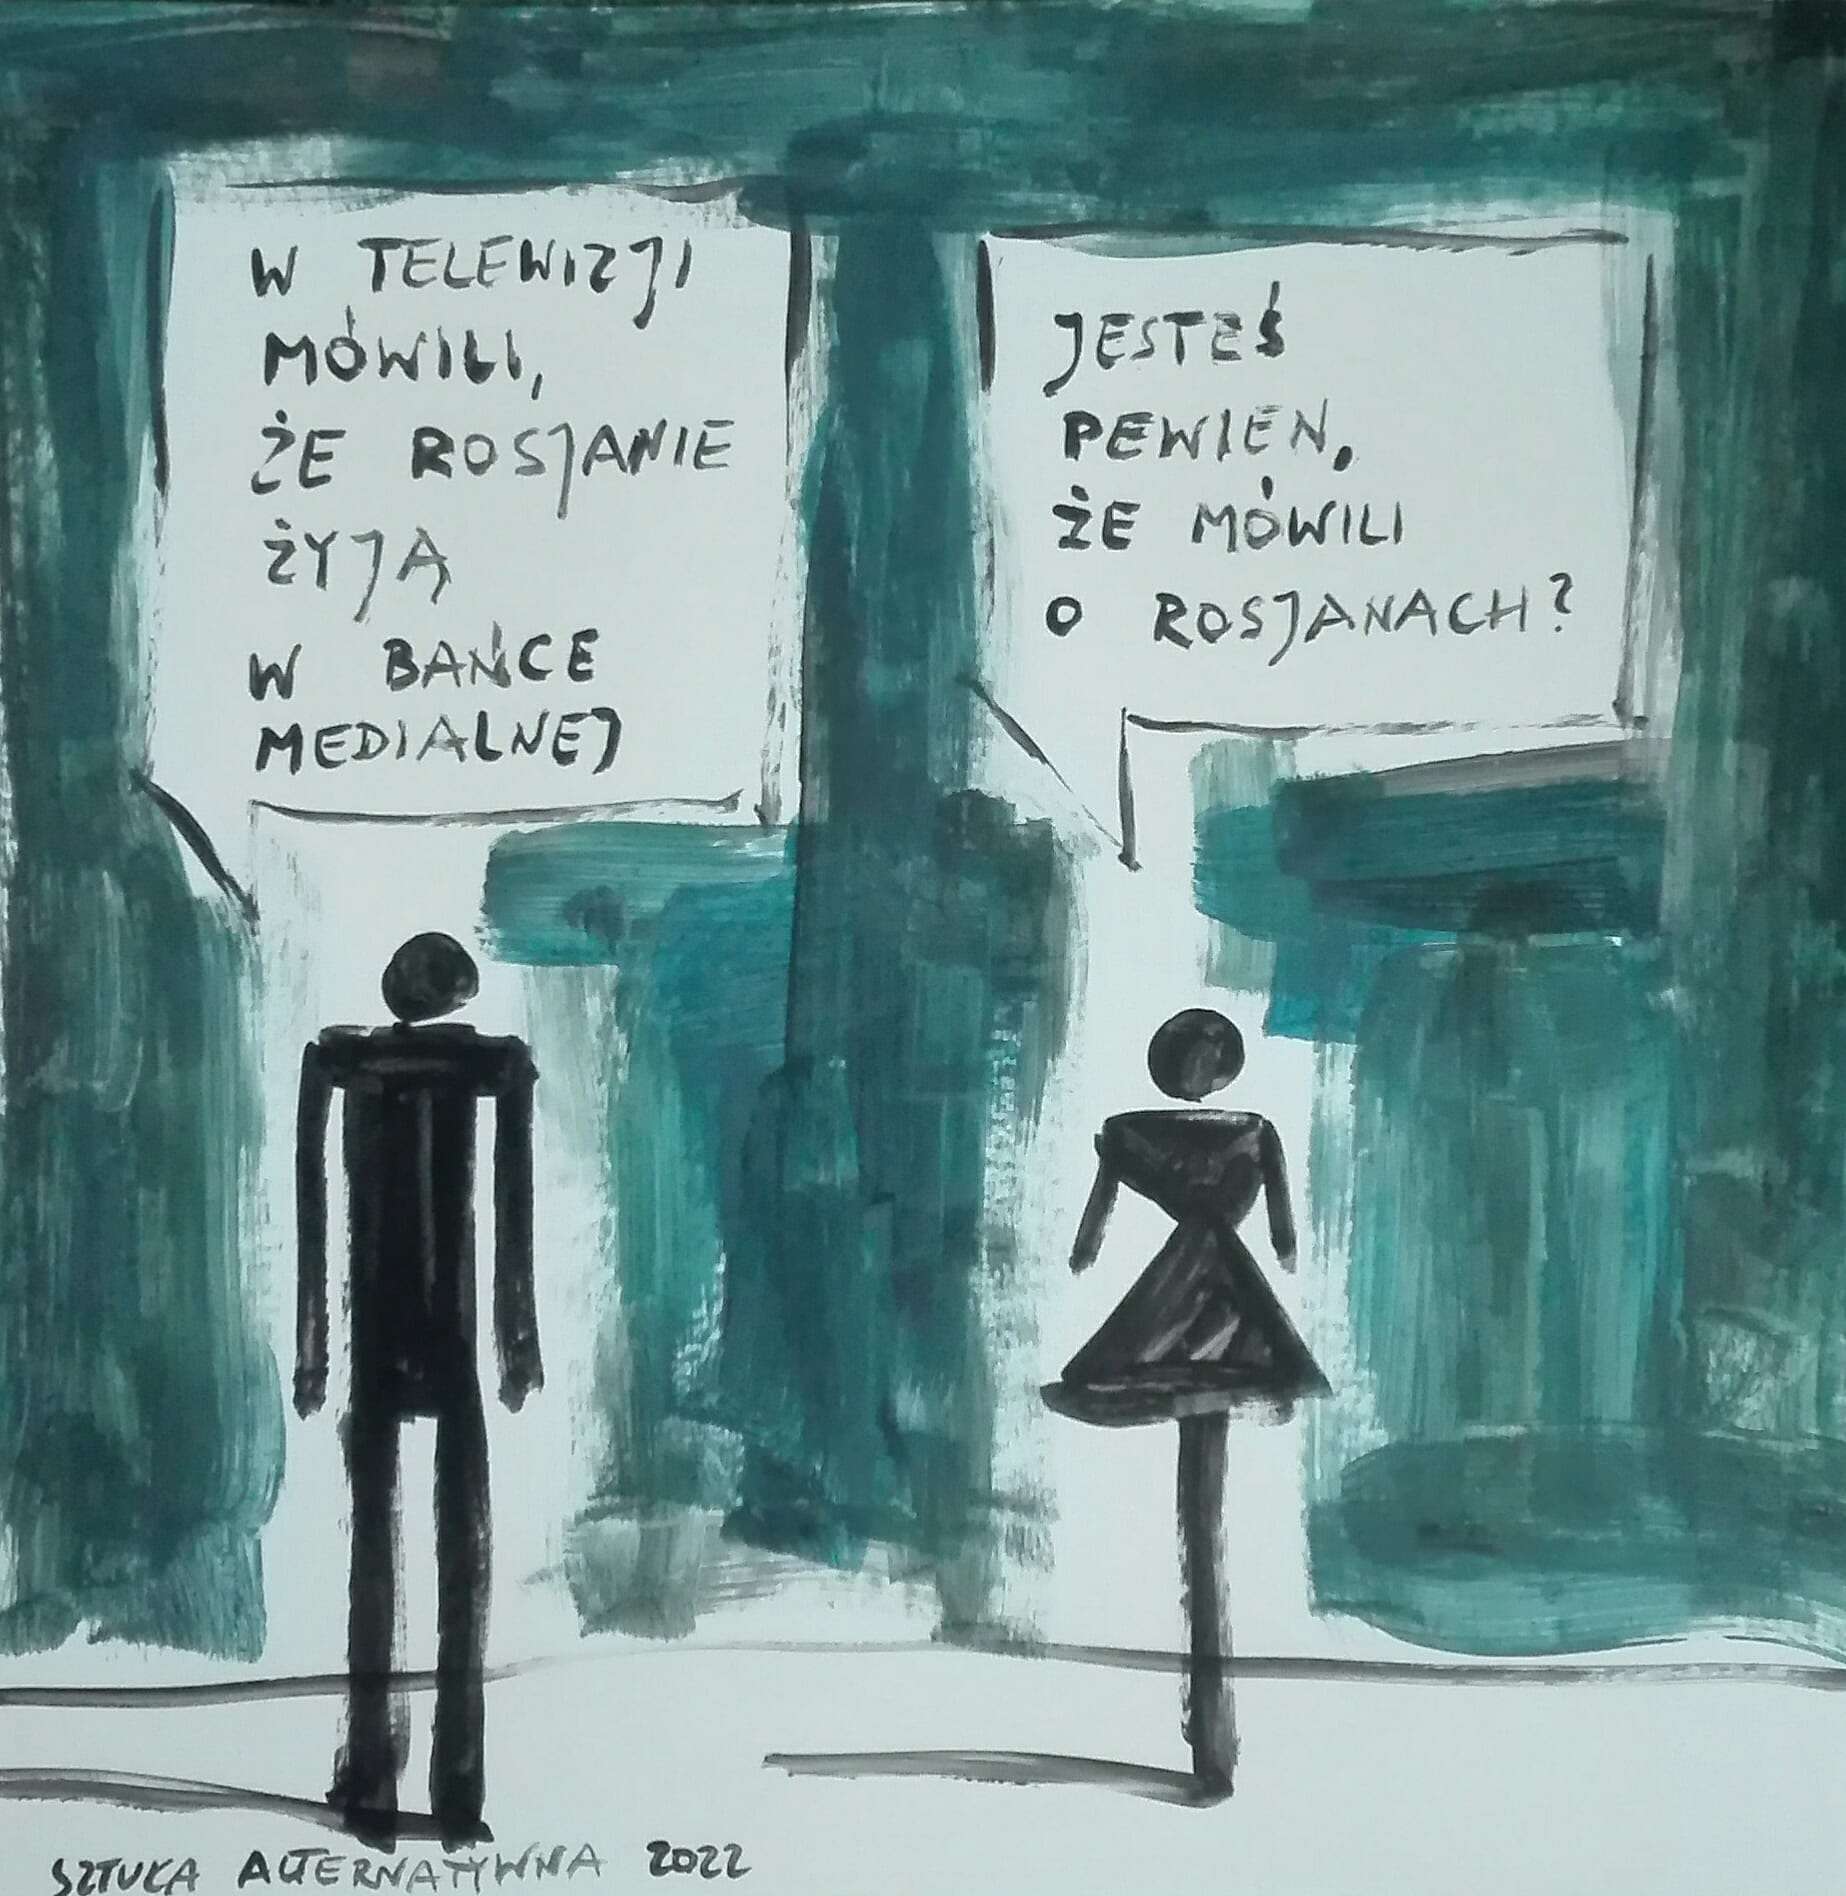 W TELEWIZJI
MÓWILI,
ŻE ROSJANIE
ŻYJĄ
W BAŃCE
MEDIALNEJ
JESTEŚ
PEWIEN,
ŻE MÓWILI
O ROSJANACH?
SZTUKA ALTERNATYWNA 2022